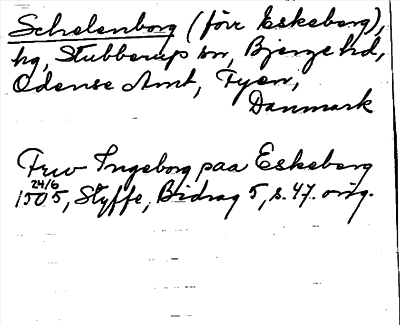 Schelenborg (förr Eskeberg),
hg, Stubberup sn, Bjerge hd,
Odense Amt, Fyen,
Danmark
Frw Ingeborg paa Eskeberg
24/6
1505, Styffe, Bidrag 5, s. 47. orig.